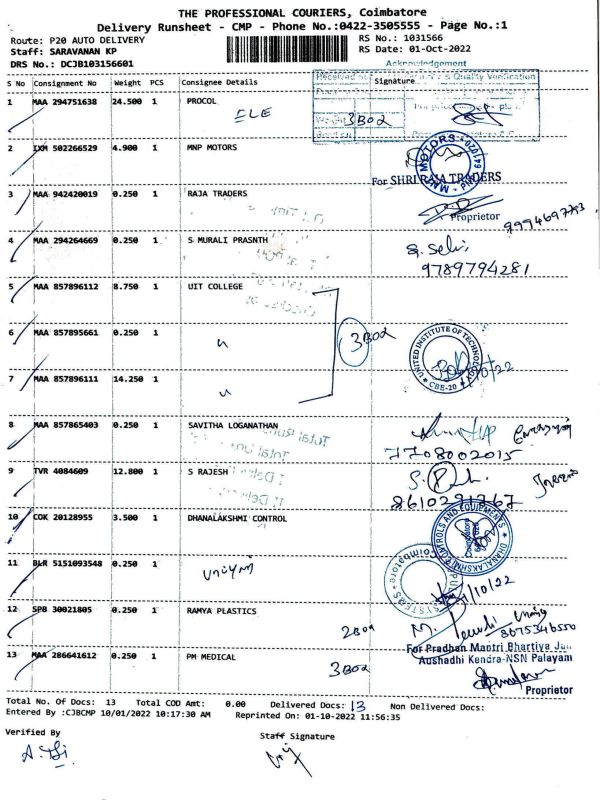 THE PROFESSIONAL COURIERS, Coimbatore
Delivery Runsheet - CMP - Phone No.:0422-3505555 - Page No.:1
Route: P20 AUTO DELIVERY RS No.: 1031566
Staff: SARAVANAN KP RS Date: 01-Oct-2022
DRS No.: DCJB103156601 Acknowledgement
S No Consignment No Weight PCS Consignee Details Signature
Quality Verification
1 MAA 294751638 24.500 1 PROCOL
ELE 3B02
2 IXM 502266529 4.900 1 MNP MOTORS
MOTORS
For SHRI RAJA TRADERS
3 MAA 942420019 0.250 1 RAJA TRADERS
Proprietor 9994697793
4 MAA 294264669 0.250 1 S MURALI PRASNTH
S. Selvi
9789794281
5 MAA 857896112 8.750 1 UIT COLLEGE
6 MAA 857895661 0.250 1 " 3B02
UNITED INSTITUTE OF TECHNOLOGY
CBE-20
7 MAA 857896111 14.250 1 "
8 MAA 857865403 0.250 1 SAVITHA LOGANATHAN
7708002015
9 TVR 4084609 12.800 1 S RAJESH
8610291267
10 COK 20128955 3.500 1 DHANALAKSHMI CONTROL
DHANALAKSHMI CONTROLS AND EQUIPMENTS
Coimbatore
11 BLR 5151093548 0.250 1
Coimbatore
SYSTEMS
1/10/22
12 SPB 30021805 0.250 1 RAMYA PLASTICS
2B02 8675346550
For Pradhan Mantri Bhartiya Jan
Aushadhi Kendra-NSN Palayam
13 MAA 286641612 0.250 1 PM MEDICAL
3B02
Proprietor
Total No. Of Docs: 13 Total COD Amt: 0.00 Delivered Docs: 13 Non Delivered Docs:
Entered By :CJBCMP 10/01/2022 10:17:30 AM Reprinted On: 01-10-2022 11:56:35
Verified By Staff Signature